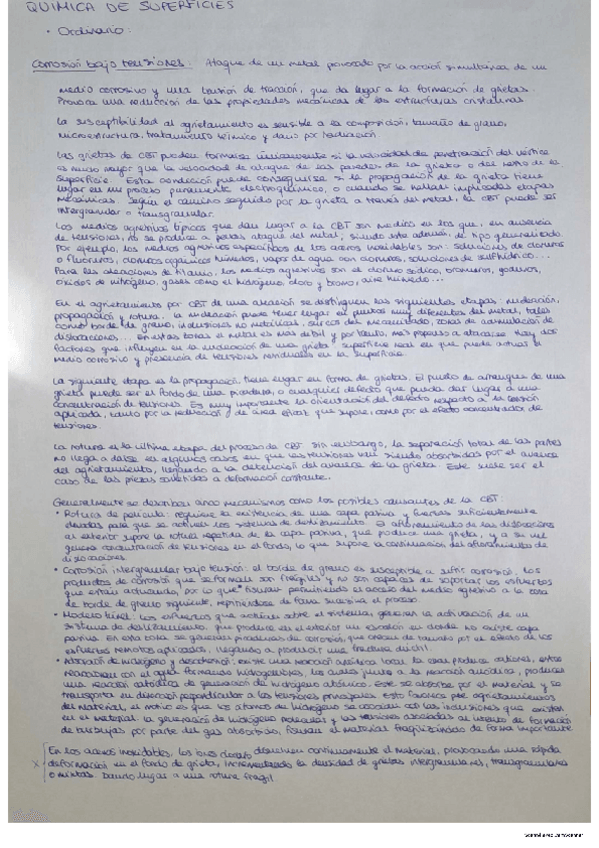 QUIMICA DE SUPERFICIES
• Ordinario:
Corrosión bajo tensiones: Ataque de un metal provocado por la acción simultánea de un
medio corrosivo y una tensión de tracción, que da lugar a la formación de grietas.
Provoca una reducción de las propiedades mecánicas de las estructuras cristalinas
La susceptibilidad al agrietamiento es sensible a la composición, tamaño de grano,
microestructura, tratamiento térmico y daño por radiación.
Las grietas de CBT pueden formarse únicamente si la velocidad de penetración del vértice
es mucho mayor que la velocidad de ataque de las paredes de la grieta o del resto de la
superficie. Esta condición puede conseguirse si la propagación de la grieta tiene
lugar en un proceso puramente electroquímico, o cuando se hallan implicadas etapas
mecánicas. Según el camino seguido por la grieta a través del metal, la CBT puede ser
intergranular o transgranular.
Los medios agresivos típicos que dan lugar a la CBT son medios en los que, en ausencia
de tensiones, no se produce apenas ataque del metal, siendo este además de tipo generalizado.
Por ejemplo, los medios agresivos específicos de los aceros inoxidables son: soluciones de cloruros
o fluoruros, cloruros orgánicos húmedos, vapor de agua con cloruros, soluciones de sulfhídrico...
Para las aleaciones de titanio, los medios agresivos son el cloruro sódico, bromuros, yoduros,
óxidos de nitrógeno, gases como el hidrógeno, cloro y bromo, aire húmedo...
En el agrietamiento por CBT de una aleación se distinguen las siguientes etapas: nucleación,
propagación y rotura. La nucleación puede tener lugar en puntos muy diferentes del metal, tales
como borde de grano, inclusiones no metálicas, surcos del mecanizado, zonas de acumulación de
dislocaciones... En estas zonas el metal es más débil y por tanto, más propenso a atacarse. Hay dos
factores que influyen en la nucleación de una grieta: superficie real en que pueda actuar el
medio corrosivo y presencia de tensiones residuales en la superficie.
La siguiente etapa es la propagación, tiene lugar en forma de grietas. El punto de arranque de una
grieta puede ser el fondo de una picadura, o cualquier defecto que pueda dar lugar a una
concentración de tensiones. Es muy importante la orientación del defecto respecto a la tensión
aplicada, tanto por la reducción de área eficaz que supone, como por el efecto concentrador de
tensiones.
La rotura es la última etapa del proceso de CBT. Sin embargo, la separación total de las partes
no llega a darse en algunos casos en que las tensiones van siendo absorbidas por el avance
del agrietamiento, llegando a la detención del avance de la grieta. Este suele ser el
caso de las piezas sometidas a deformación constante.
Generalmente se describen cinco mecanismos como los posibles causantes de la CBT:
• Rotura de película: requiere la existencia de una capa pasiva y fuerzas suficientemente
elevadas para que se activen los sistemas de deslizamiento. El afloramiento de las dislocaciones
al exterior supone la rotura repetida de la capa pasiva, que produce una grieta, y a su vez
genera concentración de tensiones en el fondo, lo que supone la continuación del afloramiento de
dislocaciones.
• Corrosión intergranular bajo tensión: el borde de grano es susceptible a sufrir corrosión. Los
productos de corrosión que se forman son frágiles y no son capaces de soportar los esfuerzos
que están actuando, por lo que fisuran permitiendo el acceso del medio agresivo a la zona
de borde de grano siguiente, repitiéndose de forma sucesiva el proceso
• Modelo túnel: los esfuerzos que actúan sobre el sistema, generan la activación de un
sistema de deslizamiento que produce en el exterior un escalón en donde no existe capa
pasiva. En esta zona se generan picaduras de corrosión, que crecen de tamaño por el efecto de los
esfuerzos remotos aplicados, llegando a producir una fractura dúctil.
• Adsorción de hidrógeno y decohesión: existe una reacción anódica local la cual produce cationes, estos
reaccionan con el agua formando hidrogeniones, los cuales junto a la reacción anódica, producen
una reacción catódica de generación de hidrógeno atómico. Este se absorbe por el material y se
transporta en dirección perpendicular a las tensiones principales. Esto favorece al agrietamiento
del material, el motivo es que los átomos de hidrógeno se asocian con las inclusiones que existen
en el material. La generación de hidrógeno molecular y las tensiones asociadas al intento de formación
de burbujas por parte del gas absorbido, fisuran el material fragilizándolo de forma importante
En los aceros inoxidables, los iones cloruro disuelven continuamente el material, provocando una rápida
x deformación en el fondo de grieta, incrementando la densidad de grietas intergranulares, transgranulares
o mixtas. Dando lugar a una rotura frágil